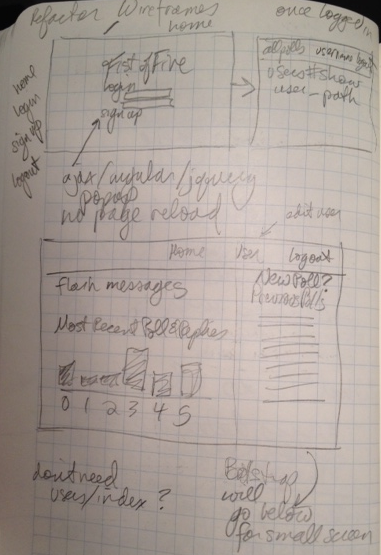 Refactor Wireframes
home
once logged in
home
login
sign up
logout
Fist of Five
login
sign up
all polls username logout
users#show
user_path
ajax/angular/jquery
popup
no page reload
edit user
Home User Logout
flash messages
New Poll?
Previous Polls
Most Recent Poll & Replies
0 1 2 3 4 5
don't need
users/index?
Bootstrap
will
go below
for small screen